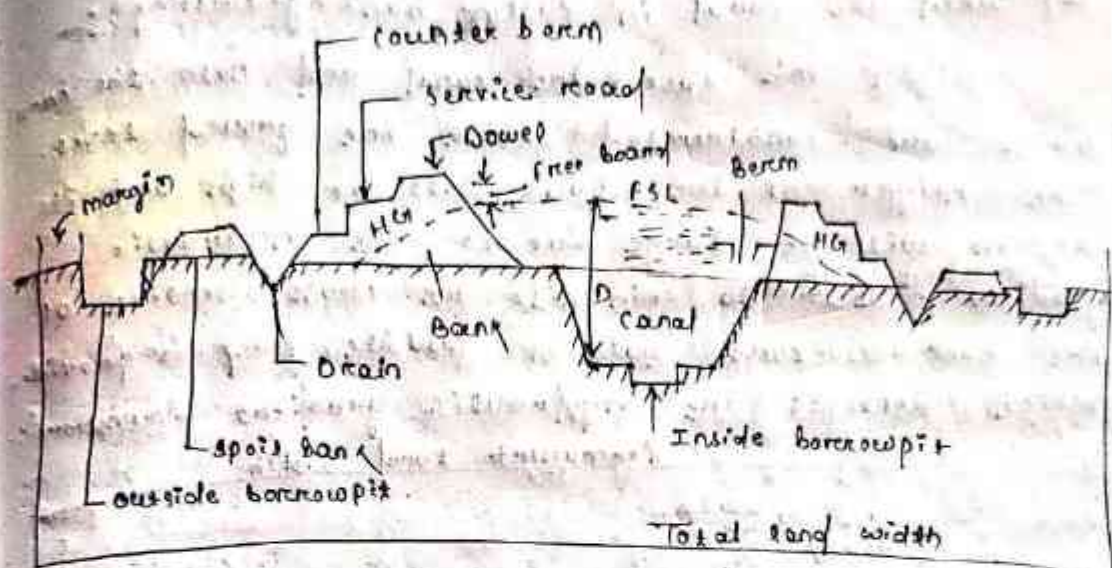 counter berm
service road
Dowel
Free board
Berm
margin
FSL
HG
HG
D
canal
Bank
Drain
Inside borrowpit
spoil bank
outside borrowpit.
Total land width